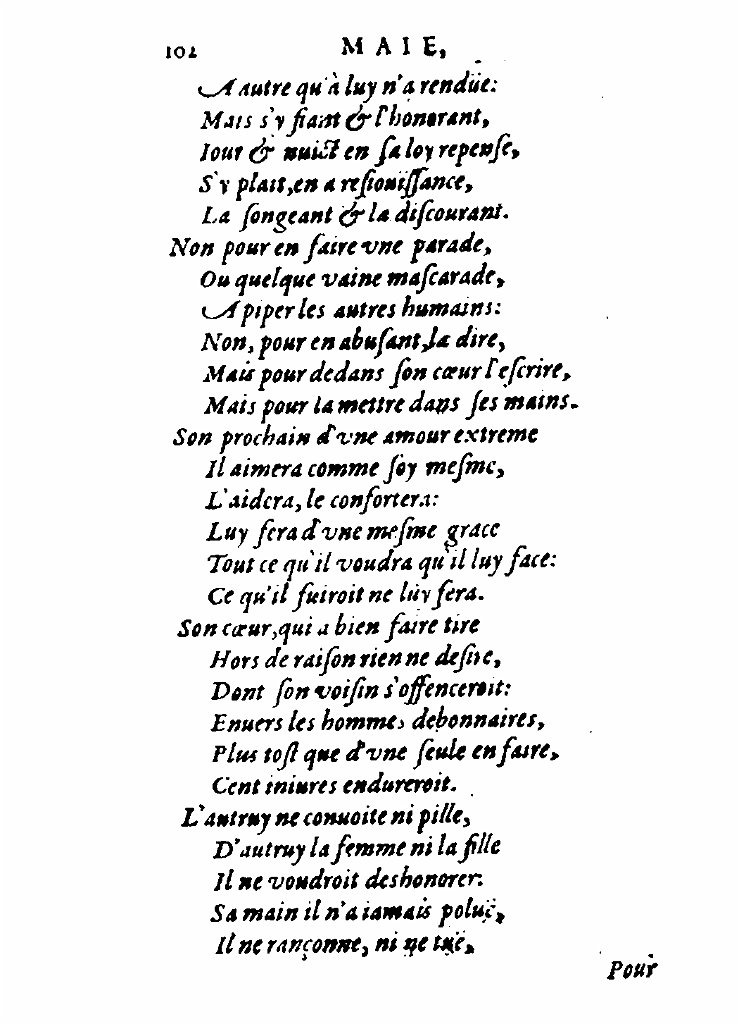 102 MAIE,
A autre qu'à luy n'a rendüe:
Mais s'y fiant & l'honorant,
Iour & nuict en sa loy repense,
S'y plait, en a resiouissance,
La songeant & la discourant.
Non pour en faire vne parade,
Ou quelque vaine mascarade,
A piper les autres humains:
Non, pour en abusant, la dire,
Mais pour dedans son cœur l'escrire,
Mais pour la mettre dans ses mains.
Son prochain d'vne amour extreme
Il aimera comme soy mesme,
L'aidera, le confortera:
Luy fera d'vne mesme grace
Tout ce qu'il voudra qu'il luy face:
Ce qu'il fuiroit ne luy fera.
Son cœur, qui a bien faire tire
Hors de raison rien ne desire,
Dont son voisin s'offenceroit:
Enuers les hommes debonnaires,
Plus tost que d'vne seule en faire,
Cent iniures endureroit.
L'autruy ne conuoite ni pille,
D'autruy la femme ni la fille
Il ne voudroit deshonorer:
Sa main il n'a iamais poluë,
Il ne rançonne, ni ne tuë,
Pour